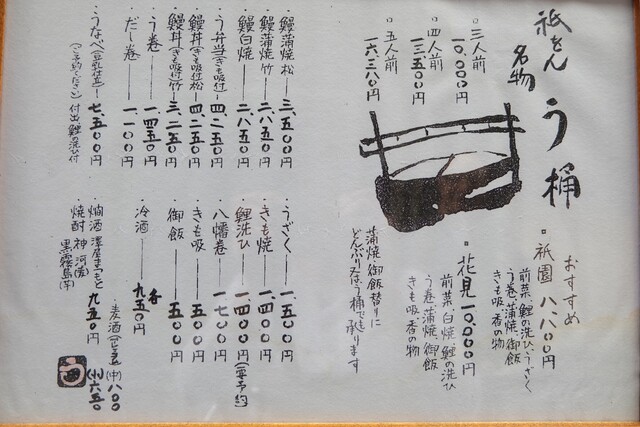 祇をん
名物
う桶
・三人前
一〇、〇〇〇円
・四人前
一三、五〇〇円
・五人前
一六、三八〇円
おすすめ
・祇園 八、八〇〇円
前菜 鯉の洗ひ、うざく
う巻 蒲焼 御飯
きも吸 香の物
・花見 一〇、〇〇〇円
前菜 白焼 鯉の洗ひ
う巻 蒲焼 御飯
きも吸 香の物
蒲焼 御飯替りに
どんぶり又はう桶で承ります
・鰻蒲焼 松 三、五〇〇円
・鰻蒲焼 竹 二、八五〇円
・鰻白焼 二、八五〇円
・う弁当(きも吸付) 四、二五〇円
・鰻丼(きも吸付)松 四、二五〇円
・鰻丼(きも吸付)竹 三、二五〇円
・う巻 一、四五〇円
・だし巻 一、一〇〇円
・うなべ(豆乳仕立) 七、五〇〇円
(ご予約ください) 付出 鯉の洗ひ付
・うざく 一、五〇〇円
・きも焼 一、四〇〇円
・鯉洗ひ 一、四〇〇円(要予約)
・八幡巻 一、七〇〇円
・きも吸 五〇〇円
・御飯 五〇〇円
・冷酒 各 九五〇円
・麦酒 (中)八〇〇
(小)六五〇
・燗酒 澤屋まつもと 九五〇円
・焼酎 神河(麦)
黒霧島(芋)
う